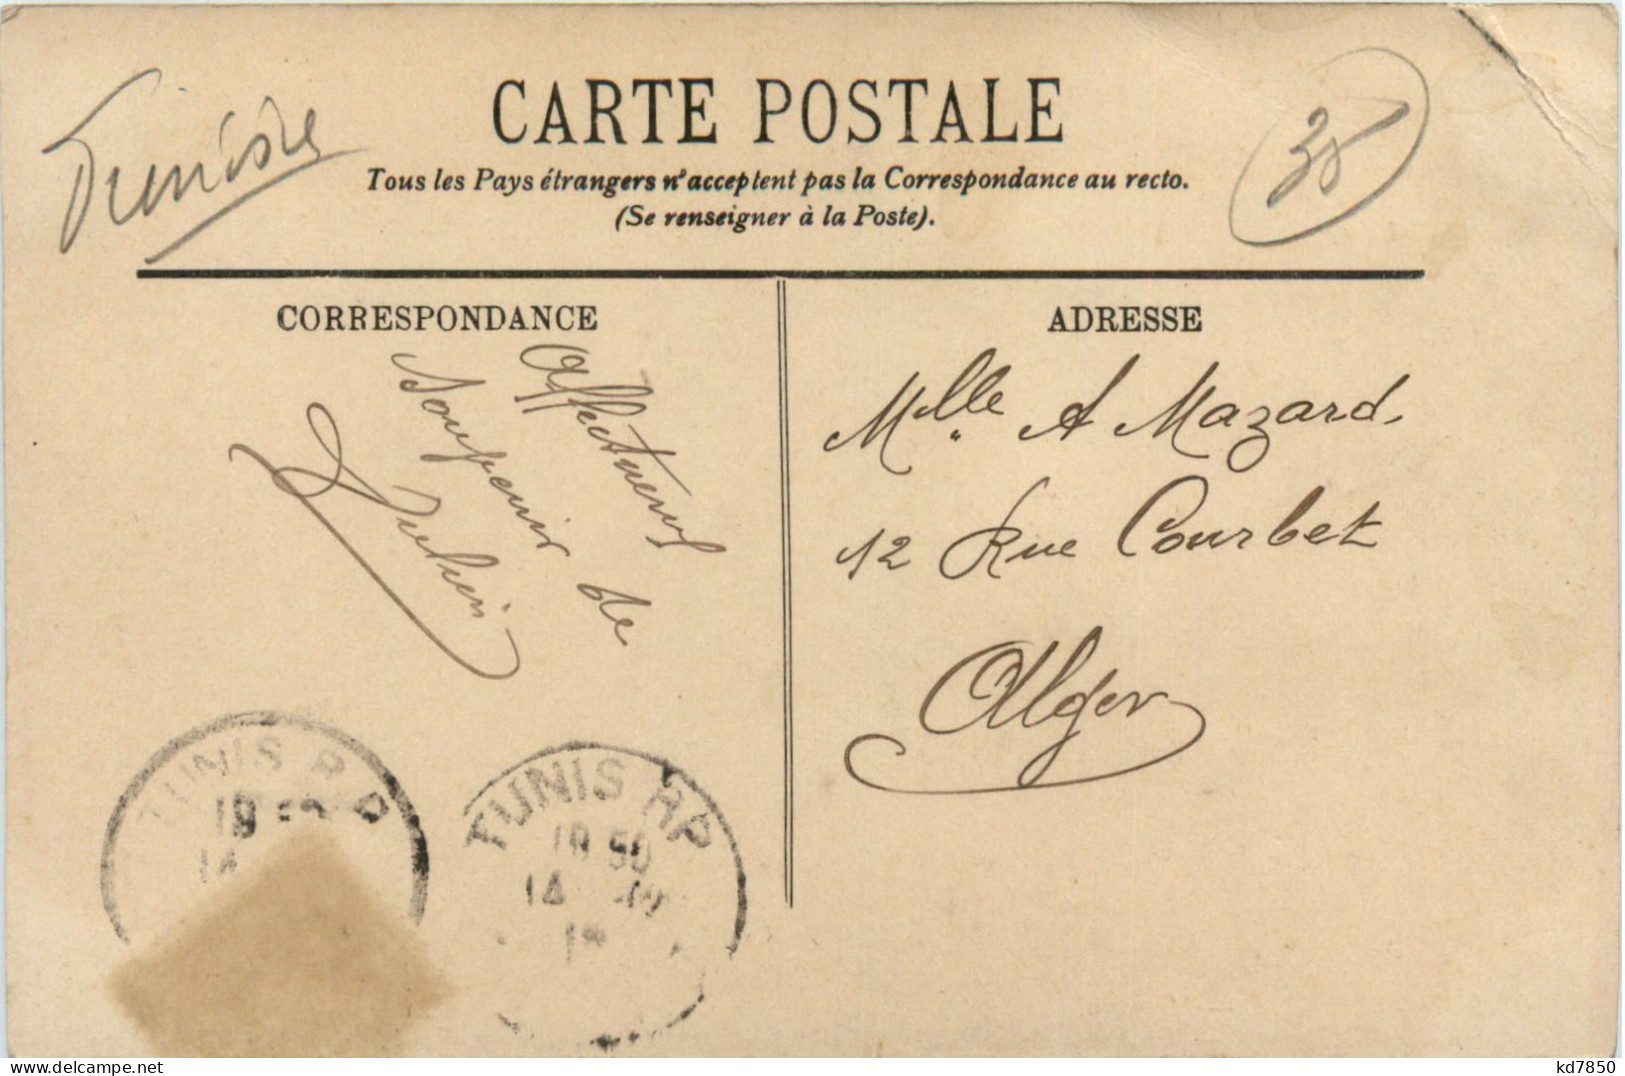 Tunisie
CARTE POSTALE
35
Tous les Pays étrangers n'acceptent pas la Correspondance au recto.
(Se renseigner à la Poste).
CORRESPONDANCE
Affectueux
souvenir de
ADRESSE
Mlle A Mazard.
12 Rue Courbet
Alger
TUNIS R.P
TUNIS RP
18 50
14
delcampe.net
kd7850